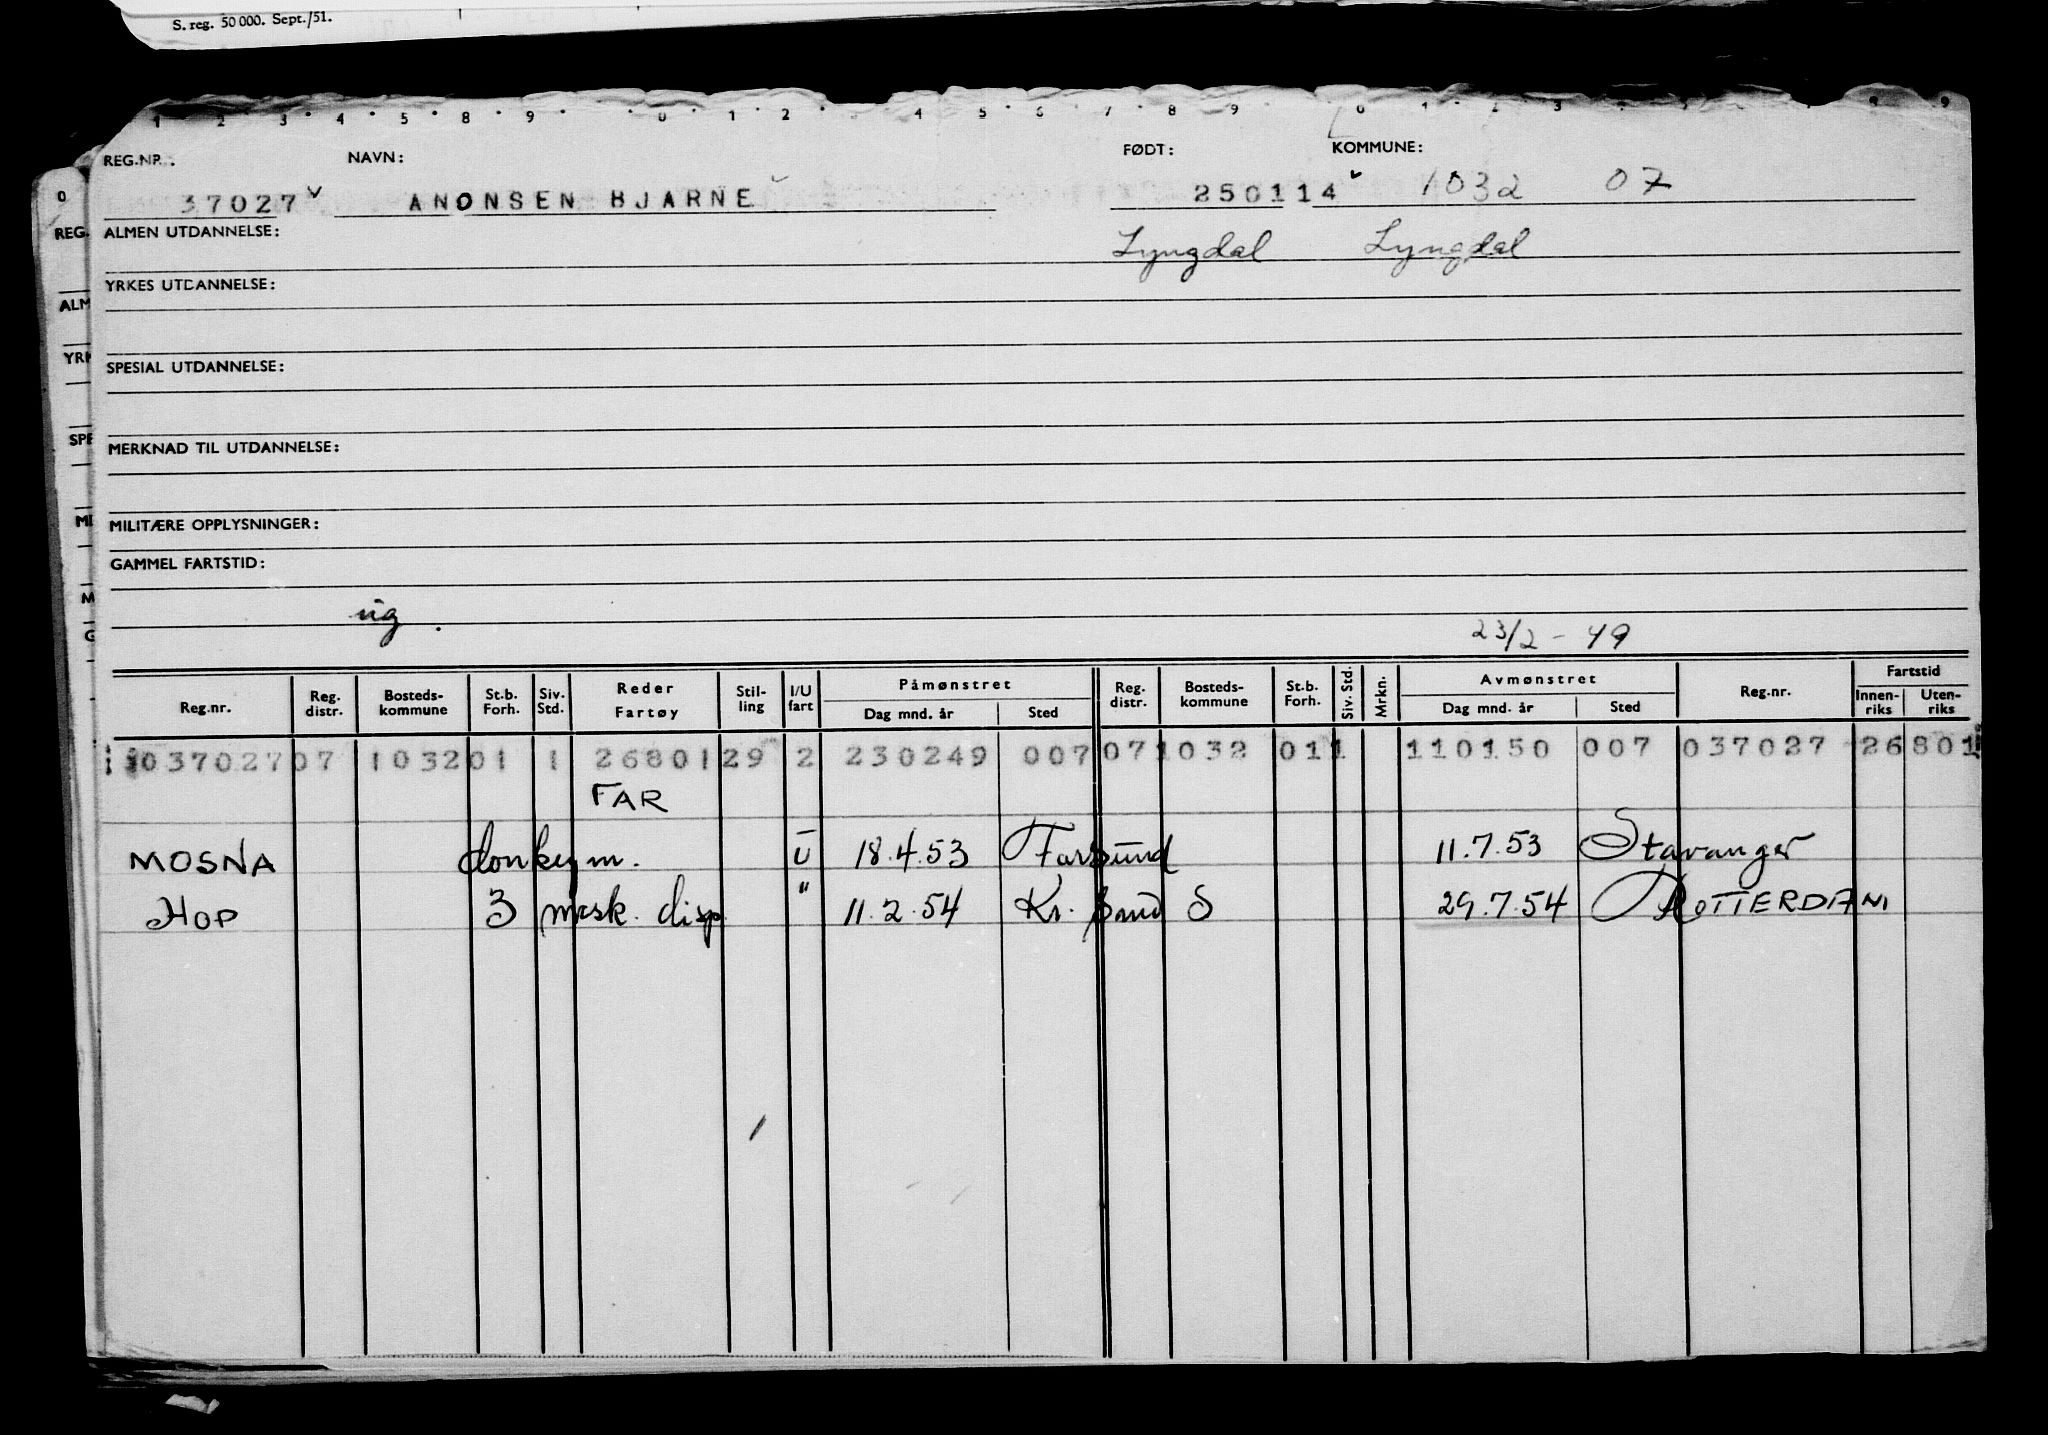 S. reg. 50 000. Sept./51.
1 2 3 4 5 8 9 0 1 2 4 5 6 7 8 9 0 1 2 3 5 9
REG.NR.: NAVN: FØDT: KOMMUNE:
37027 ANONSEN BJARNE 250114 1032 07
ALMEN UTDANNELSE: Lyngdal Lyngdal
YRKES UTDANNELSE:
SPESIAL UTDANNELSE:
MERKNAD TIL UTDANNELSE:
MILITÆRE OPPLYSNINGER:
GAMMEL FARTSTID:
ug.
23/2 - 49
Reg.nr. Reg. distr. Bosteds-kommune St.b. Forh. Siv. Std. Reder Fartøy Stil-ling I/U fart Påmønstret Dag mnd. år Sted Reg. distr. Bosteds-kommune St.b. Forh. Siv. Std. Mrkn. Avmønstret Dag mnd. år Sted Reg.nr. Fartstid Innen-riks Uten-riks
037027 07 1032 01 1 26801 29 2 230249 007 07 1032 01 1 110150 007 037027 26801
FAR
MOSNA donkeym. U 18.4.53 Farsund 11.7.53 Stavanger
HOP 3 mask. disp. " 11.2.54 Kr. sand S 29.7.54 ROTTERDAM